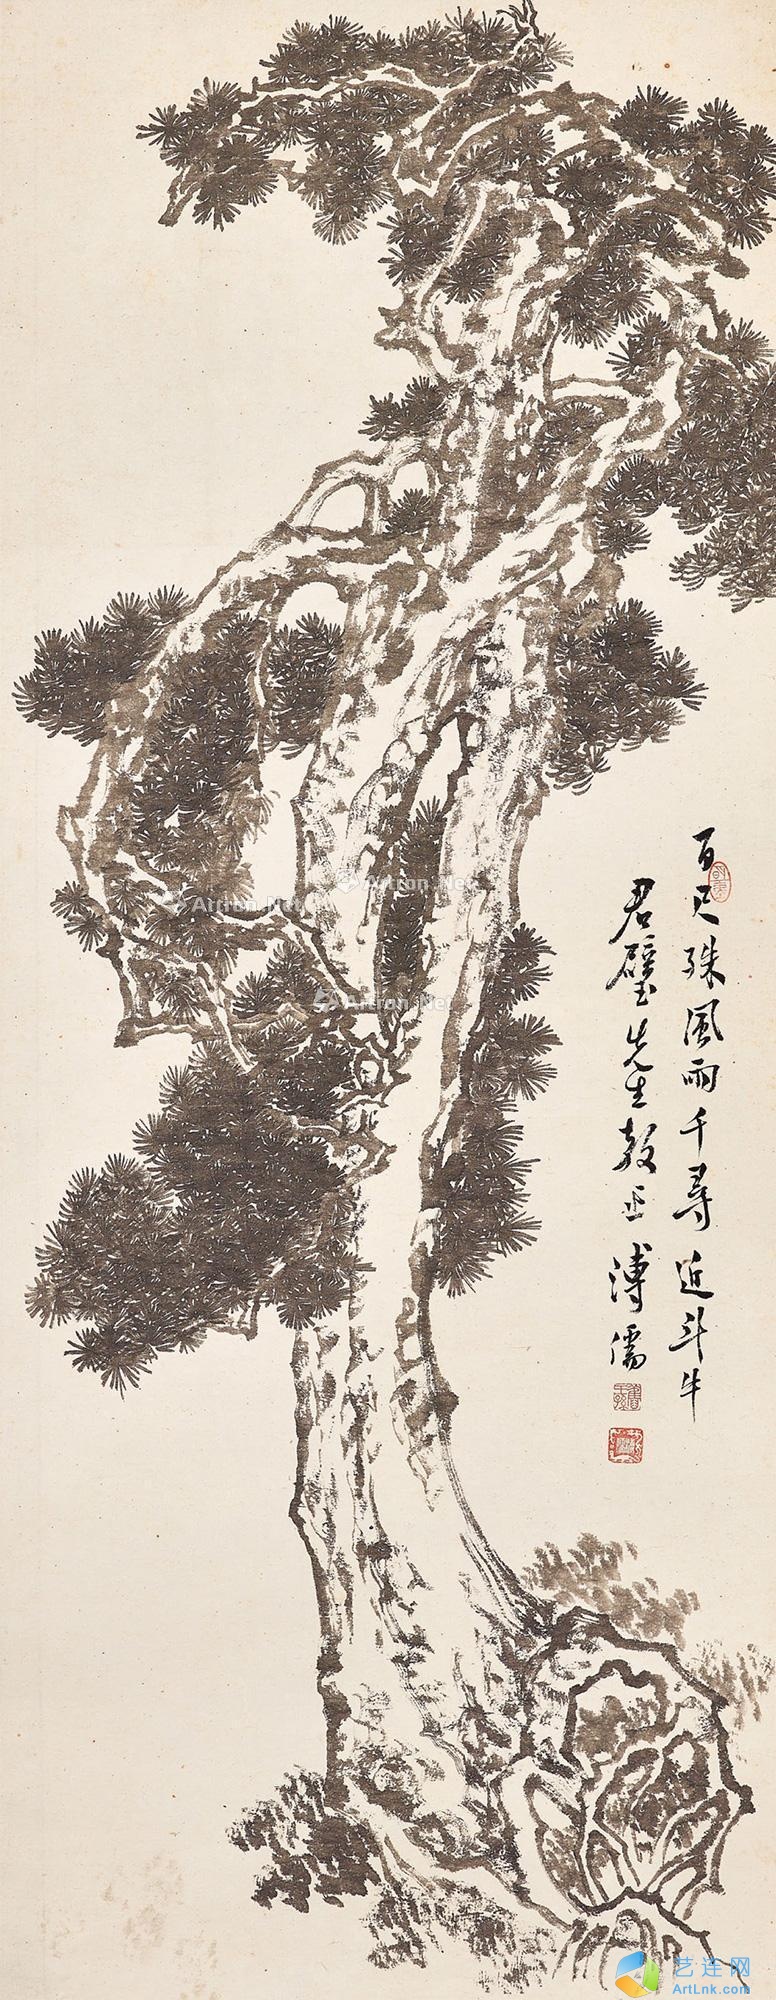 百尺殊風雨千尋近斗牛
君璧先生教正 溥儒
Artron.Net
Artron.Net
Artron.Net
Artron.Net
艺连网
ArtLnk.com